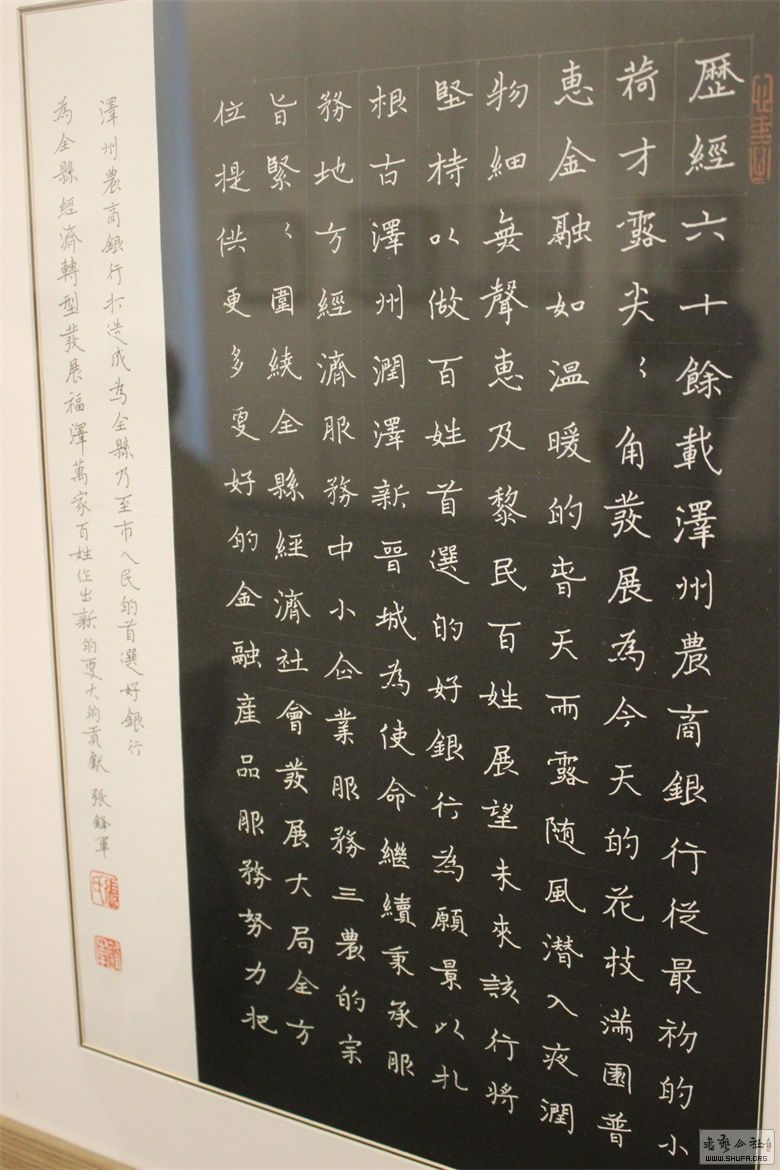 歷經六十餘載澤州農商銀行從最初的小
荷才露尖〻角發展為今天的花枝滿園普
惠金融如温暖的春天雨露随風潜入夜潤
物細無聲惠及黎民百姓展望未來該行將
堅持以做百姓首選的好銀行為願景以扎
根古澤州潤澤新晉城為使命繼續秉承服
務地方經濟服務中小企業服務三農的宗
旨緊〻圍繞全縣經濟社會發展大局全方
位提供更多更好的金融産品服務努力把
澤州農商銀行打造成為全縣乃至市人民的首選好銀行
為全縣經濟轉型發展福澤萬家百姓作出新的更大的貢獻 張鋒軍
書藝公社
WWW.SHUFA.ORG